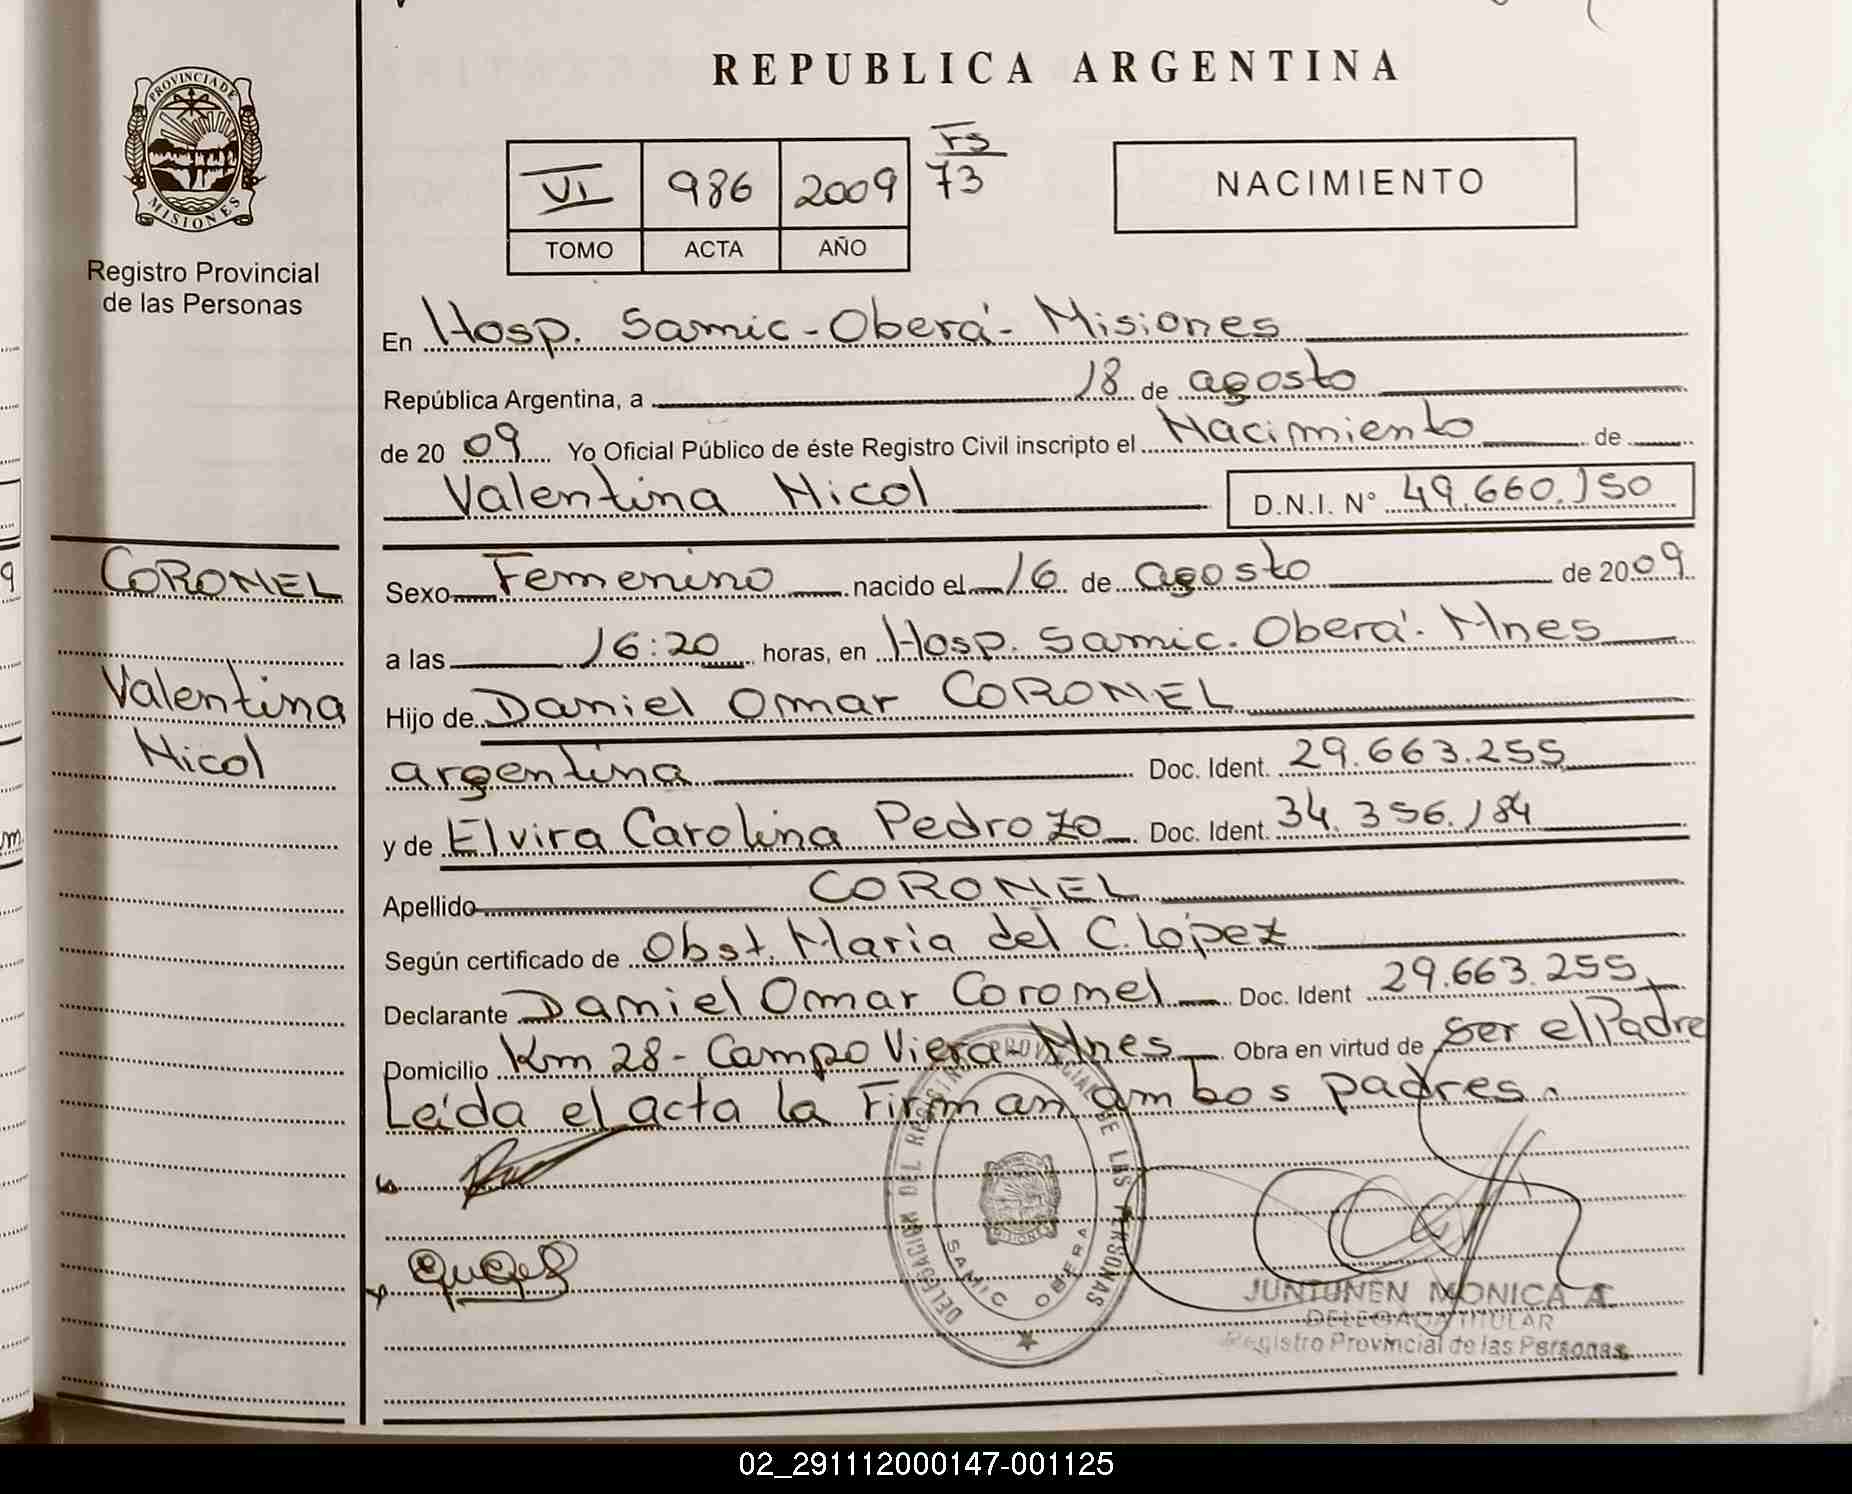 REPUBLICA ARGENTINA
PROVINCIA DE
MISIONES
Registro Provincial
de las Personas
VI 986 2009 Fs 73
TOMO ACTA AÑO
NACIMIENTO
En Hosp. Samic - Oberá - Misiones
República Argentina, a 18 de agosto
de 20 09 Yo Oficial Público de éste Registro Civil inscripto el Nacimiento de
Valentina Nicol D.N.I. N° 49.660.150
CORONEL
Valentina
Nicol
Sexo Femenino nacido el 16 de agosto de 2009
a las 16:20 horas, en Hosp. Samic. Oberá. Mnes
Hijo de Daniel Omar CORONEL
argentina Doc. Ident. 29.663.255
y de Elvira Carolina Pedrozo Doc. Ident. 34.356.184
Apellido CORONEL
Según certificado de Obst. Maria del C. López
Declarante Daniel Omar Coronel Doc. Ident 29.663.255
Domicilio Km 28 - Campo Viera - Mnes Obra en virtud de ser el Padre
Leída el acta la Firman ambos padres.
DELEGACION DEL REGISTRO PROVINCIAL DE LAS PERSONAS
MISIONES
SAMIC OBERA
JUNTUNEN MONICA A.
DELEGADA TITULAR
Registro Provincial de las Personas
02_291112000147-001125